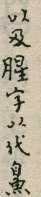 以及腥字以代臭